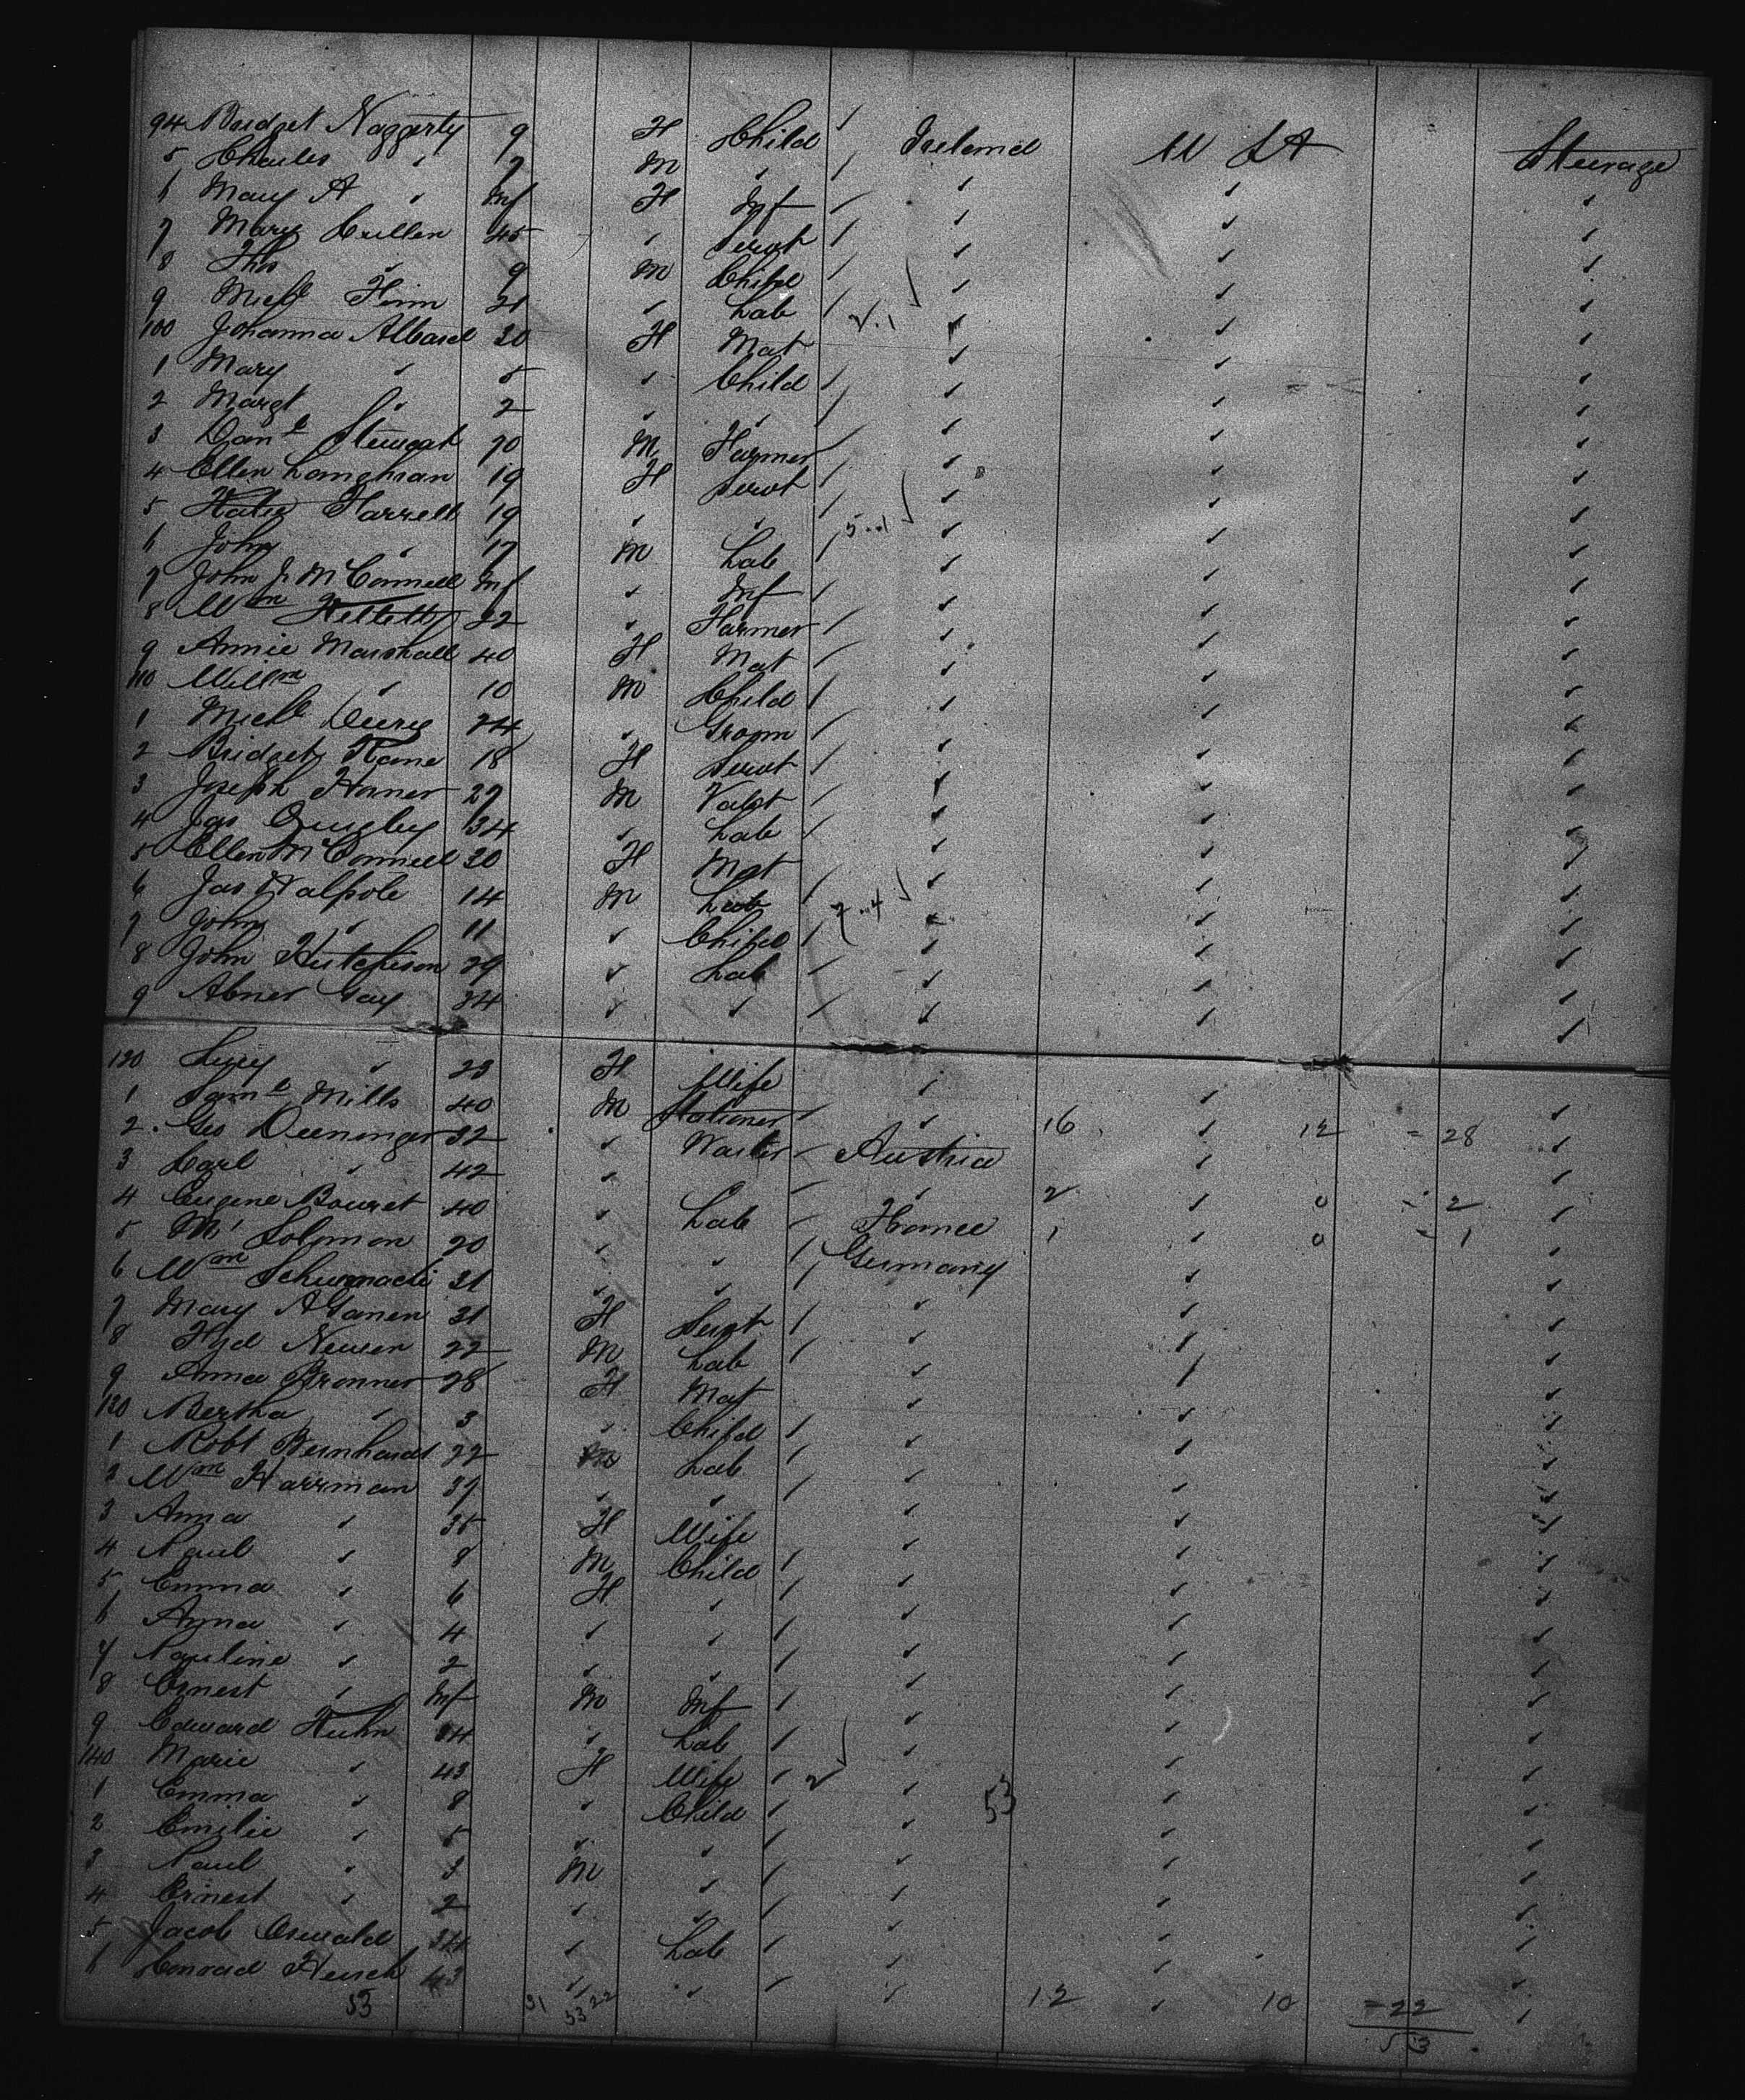 94 Bridget Haggerty 9 F Child / Ireland U S A Steerage
5 Charles " 7 M " /
6 Mary A " Inf F Inf /
7 Mary Cullen 45 " Servt /
8 Thos " 9 M Child /
9 Michl Finn 21 " Lab /
100 Johanna 30 F Mat
1 Mary " 5 " Child /
2 Margt " 2 " " /
3 Danl Stewart 70 M Farmer /
4 Ellen Loughran 19 F Servt /
5 Katie Farrell 19 " " /
6 John " 17 M Lab /
7 John J McConnell Inf " Inf /
8 Wm 22 " Farmer /
9 Annie Marshall 40 F Mat /
110 Willm " 10 M Child /
1 Michl 24 " Groom /
2 Bridget Kane 18 F Servt /
3 Joseph 27 M Valet /
4 Jas Quigley 34 " Lab /
5 Ellen McConnell 30 F Mat
6 Jas Walpole 14 M Lab /
7 John " 11 " Child /
8 John Hutchison 29 " Lab /
9 Abner Gay 34 " " /
120 Lucy " 23 F Wife
1 Saml Mills 40 M Stationer / " 16 " 12 = 28
2 Geo Deeninger 32 " Waiter / Austria
3 Carl " 42 " / " 2 " 0 = 2
4 Eugene Bouret 40 " Lab / France 1 " 0 = 1
5 M Solomon 20 " " / Germany
6 Wm 31 " " /
7 Mary 31 F Servt /
8 22 M Lab /
9 Anna Bronner 28 F Mat
130 Bertha " 3 " Child /
1 Robt Bernhardt 22 M Lab /
2 Wm Harrman 39 " " /
3 Anna " 35 F Wife
4 Paul " 8 M Child /
5 Emma " 6 F " /
6 Anna " 4 " " /
7 Pauline " 2 " " /
8 Ernest " Inf M Inf /
9 Edward Kuhn 44 " Lab /
140 Marie " 43 F Wife /
1 Emma " 8 " Child / 53
2 Emilie " 5 " " /
3 Paul " 3 M " /
4 Ernest " 2 " " /
5 Jacob Oswald 34 " Lab /
6 Conrad 43 " " / " 12 " 10 = 22
53 31 22 53 53